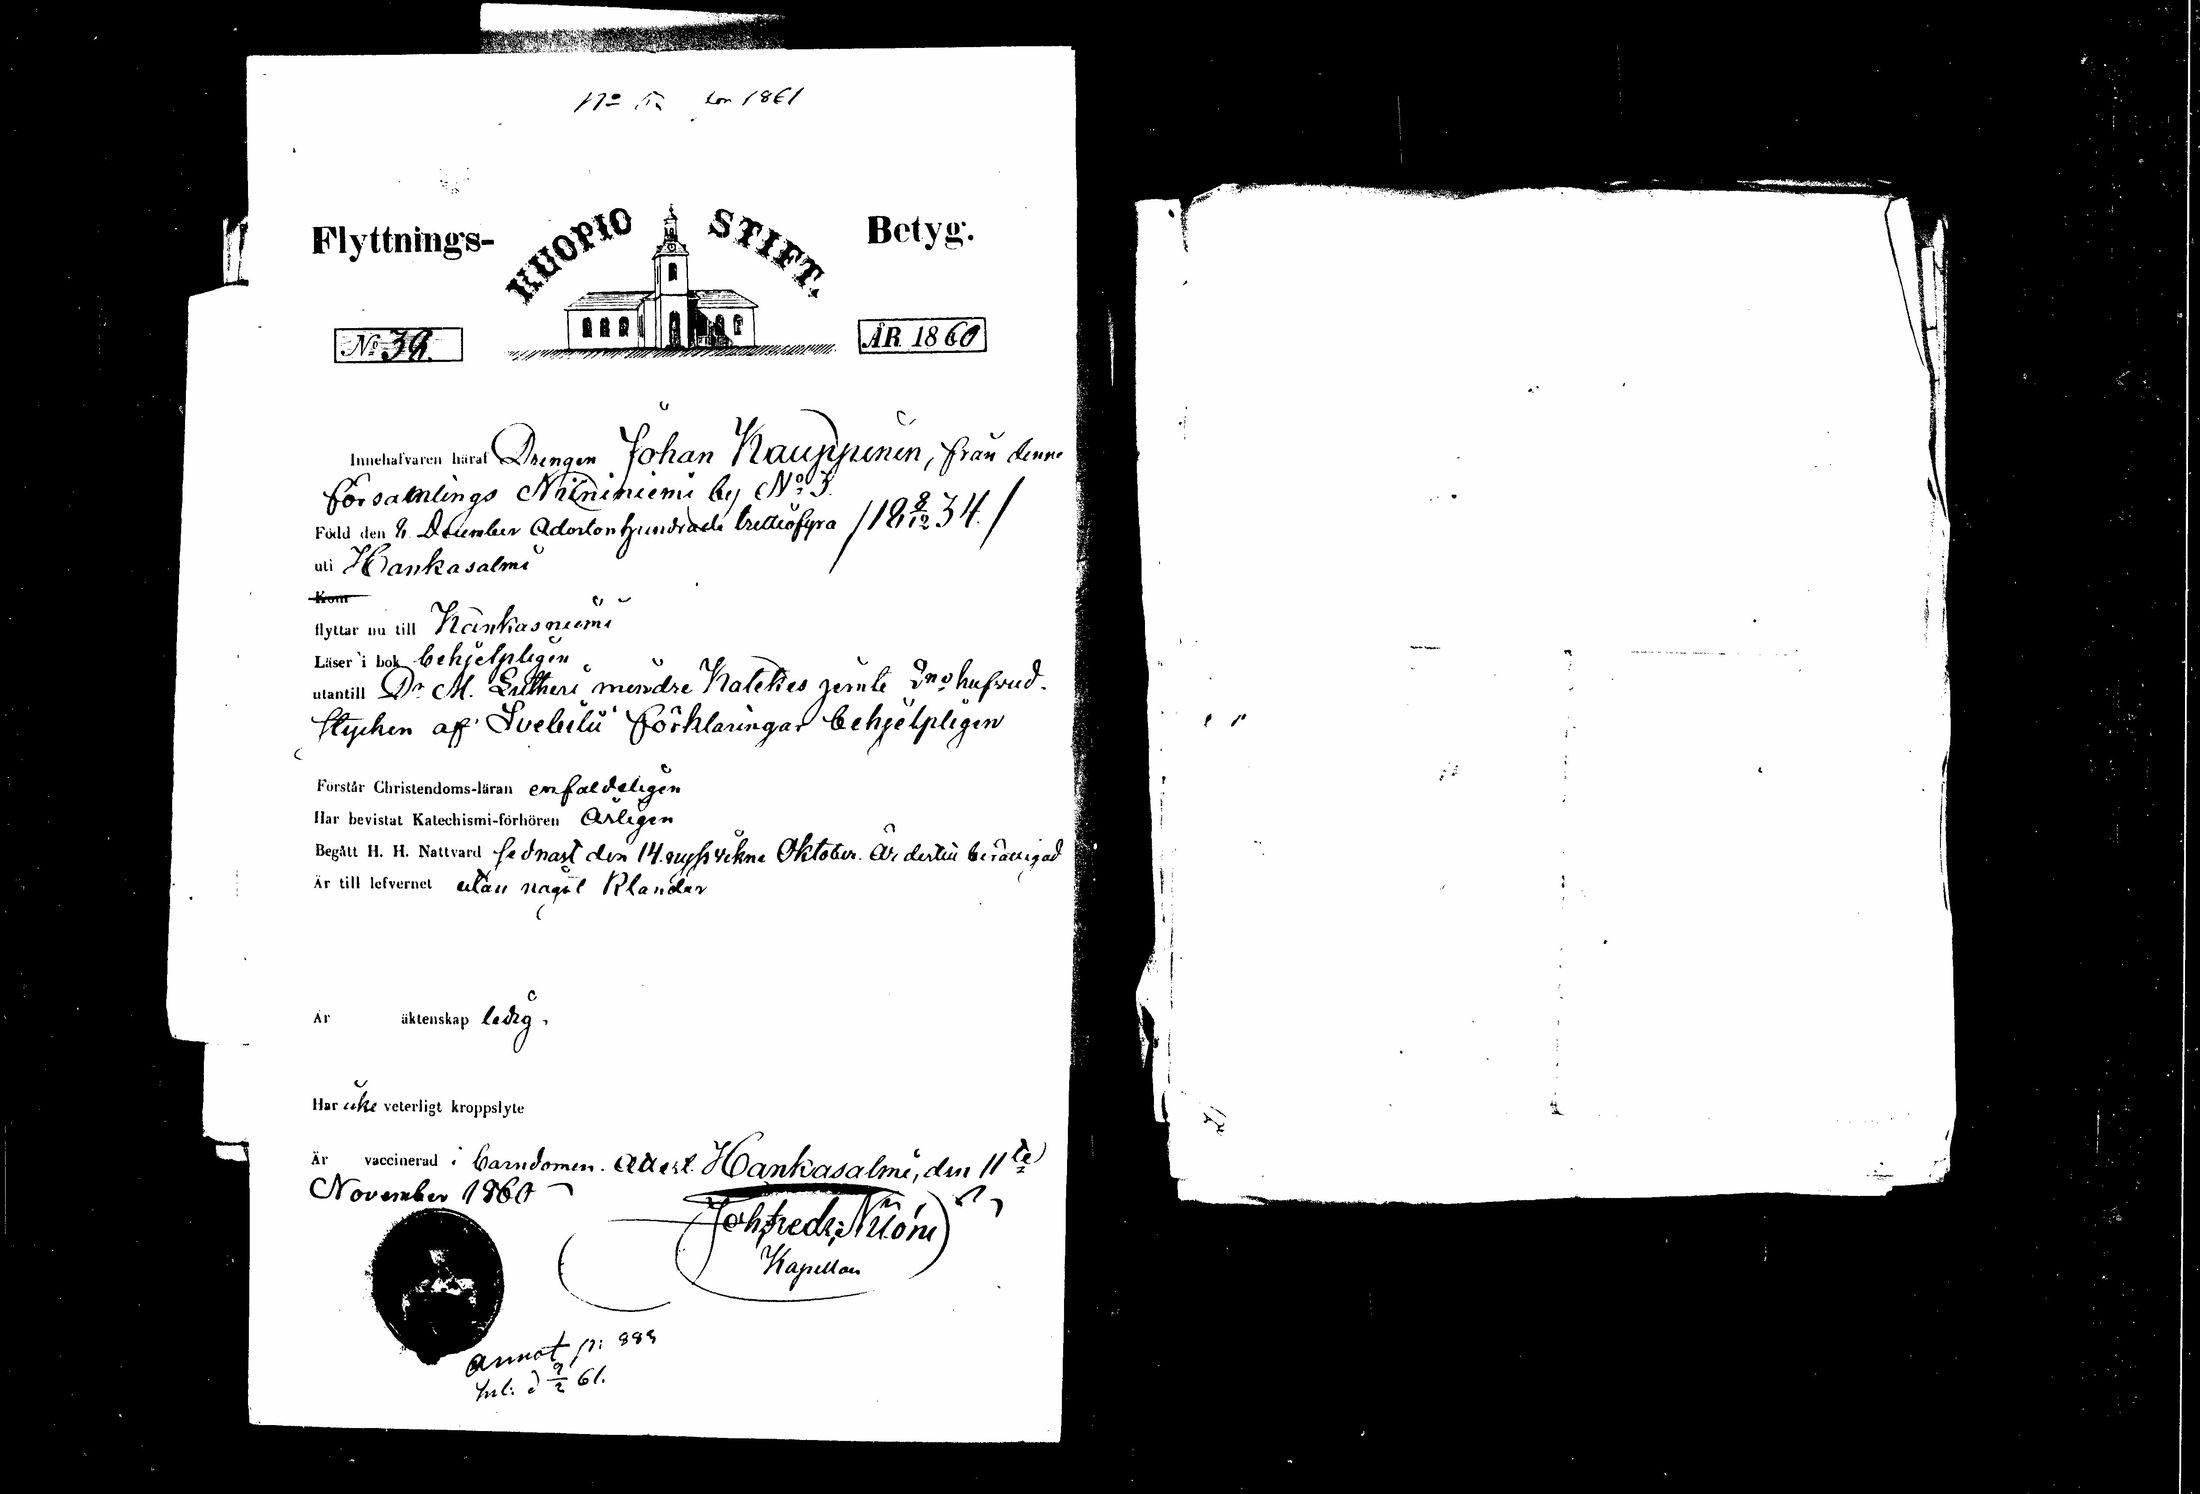 No kom 1861
Flyttnings- KUOPIO STIFT. Betyg.
No 39. ÅR 1860
Innehafvaren häraf Drengen Johan Kauppinen, från denne
församlings Niininiemi by No 3.
Född den 8 December Adertonhundrade trettiofyra /18 8/12 34./
uti Hankasalmi
Kom
flyttar nu till Kankasniemi
Läser i bok behjelpligen
utantill Dr M. Lutheri mindre Katekes jemte hufvud-
stycken af Svebilii förklaringar behjelpligen
Förstår Christendoms-läran enfaldeligen
Har bevistat Katechismi-förhören Årligen
Begått H. H. Nattvard sednast den 14. nyssvekne Oktober. Är dertill berättigad
Är till lefvernet utan något Klander
Är äktenskap ledig.
Har icke veterligt kroppslyte
Är vaccinerad i barndomen. Attest. Hankasalmi, den 11te
November 1860
Joh: Fredr:
Kapellan
Annot p: 883
Inl: d 9/2 61.